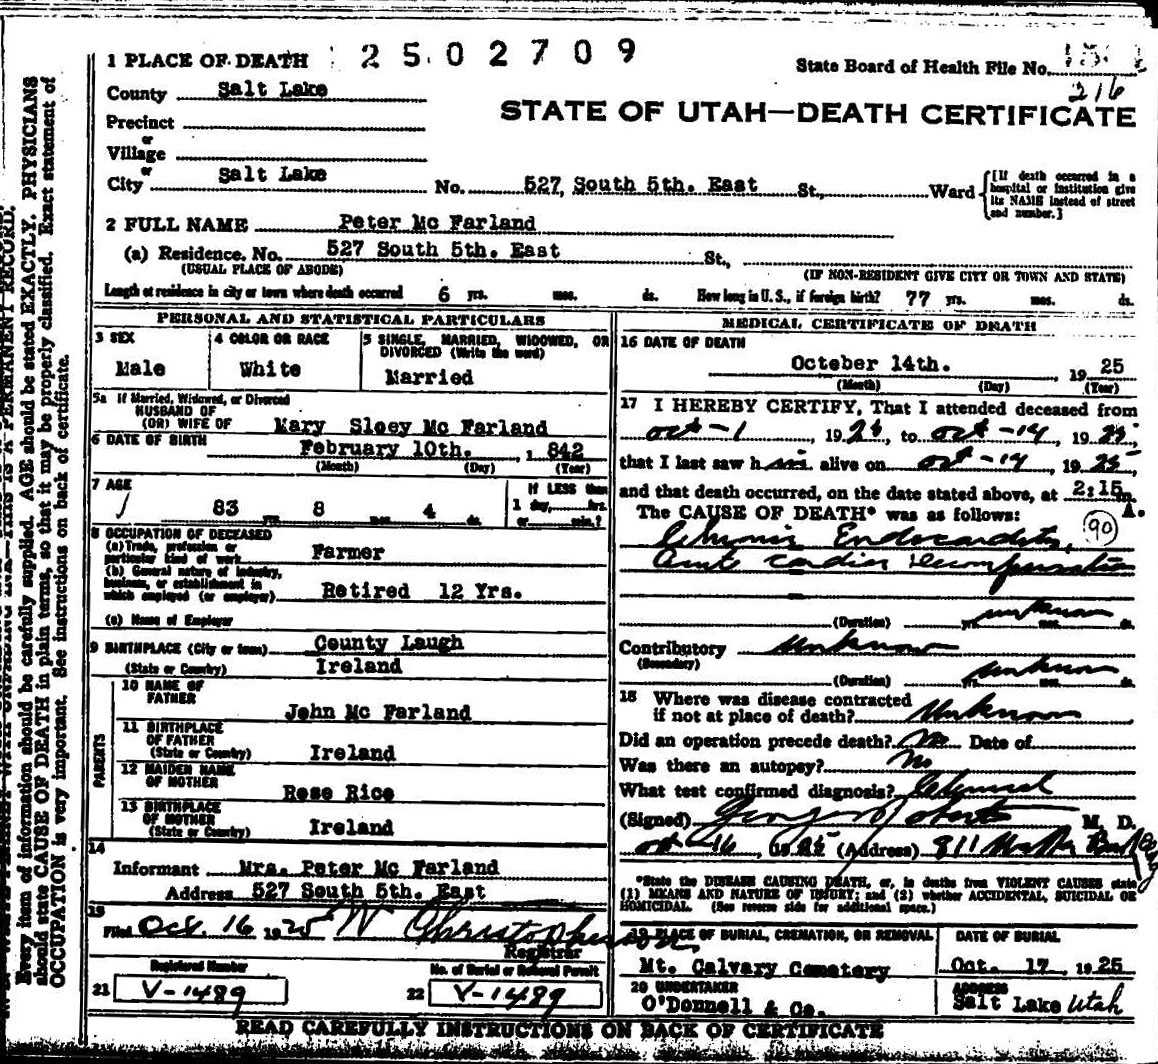 1 PLACE OF DEATH 2502709
State Board of Health File No.
216
County Salt Lake
STATE OF UTAH—DEATH CERTIFICATE
Precinct
or
Village
or
City Salt Lake No. 527 South 5th. East St., Ward
[If death occurred in a hospital or institution give its NAME instead of street and number.]
2 FULL NAME Peter Mc Farland
(a) Residence. No. 527 South 5th. East St.,
(USUAL PLACE OF ABODE) (IF NON-RESIDENT GIVE CITY OR TOWN AND STATE)
Length of residence in city or town where death occurred 6 yrs. mos. ds. How long in U. S., if foreign birth? 77 yrs. mos. ds.
PERSONAL AND STATISTICAL PARTICULARS
3 SEX
Male
4 COLOR OR RACE
White
5 SINGLE, MARRIED, WIDOWED, OR
DIVORCED (Write the word)
Married
5a If Married, Widowed, or Divorced
HUSBAND OF
(OR) WIFE OF Mary Sloey Mc Farland
6 DATE OF BIRTH February 10th. , 1 842
(Month) (Day) (Year)
7 AGE
83 yrs. 8 mos. 4 ds.
If LESS than
1 day, hrs.
or min.?
8 OCCUPATION OF DECEASED
(a) Trade, profession or
particular kind of work Farmer
(b) General nature of industry,
business, or establishment in
which employed (or employer) Retired 12 Yrs.
(c) Name of Employer
9 BIRTHPLACE (City or town) County Laugh
(State or Country) Ireland
PARENTS
10 NAME OF
FATHER
John Mc Farland
11 BIRTHPLACE
OF FATHER
(State or Country) Ireland
12 MAIDEN NAME
OF MOTHER
Rose Rice
13 BIRTHPLACE
OF MOTHER
(State or Country) Ireland
14
Informant Mrs. Peter Mc Farland
Address 527 South 5th. East
15
Filed Oct. 16 1925 W Christopherson
Registrar
Registered Number No. of Burial or Removal Permit
21 V-1489 22 V-1489
MEDICAL CERTIFICATE OF DEATH
16 DATE OF DEATH
October 14th. 19 25
(Month) (Day) (Year)
17 I HEREBY CERTIFY, That I attended deceased from
Oct-1, 1925, to Oct-14, 1925,
that I last saw him alive on Oct-14, 1925,
and that death occurred, on the date stated above, at 2:15 m.
A.
The CAUSE OF DEATH* was as follows: 90
Chronic Endocarditis,
Acute Cardiac Decompensation
(Duration) yrs. unknown mos. ds.
Contributory Unknown
(Secondary)
(Duration) yrs. unknown mos. ds.
18 Where was disease contracted
if not at place of death? Unknown
Did an operation precede death? No Date of
Was there an autopsy? No
What test confirmed diagnosis? Clinical
(Signed) M. D.
Oct-16, 1925 (Address) 811
*State the DISEASE CAUSING DEATH, or, in deaths from VIOLENT CAUSES state
(1) MEANS AND NATURE OF INJURY; and (2) whether ACCIDENTAL, SUICIDAL OR
HOMICIDAL. (See reverse side for additional space.)
19 PLACE OF BURIAL, CREMATION, OR REMOVAL
Mt. Calvary Cemetery
DATE OF BURIAL
Oct. 17, 1925
20 UNDERTAKER
O'Donnell & Co.
ADDRESS
Salt Lake Utah
READ CAREFULLY INSTRUCTIONS ON BACK OF CERTIFICATE
Every item of information should be carefully supplied. AGE should be stated EXACTLY. PHYSICIANS
should state CAUSE OF DEATH in plain terms, so that it may be properly classified. Exact statement of
OCCUPATION is very important. See instructions on back of certificate.